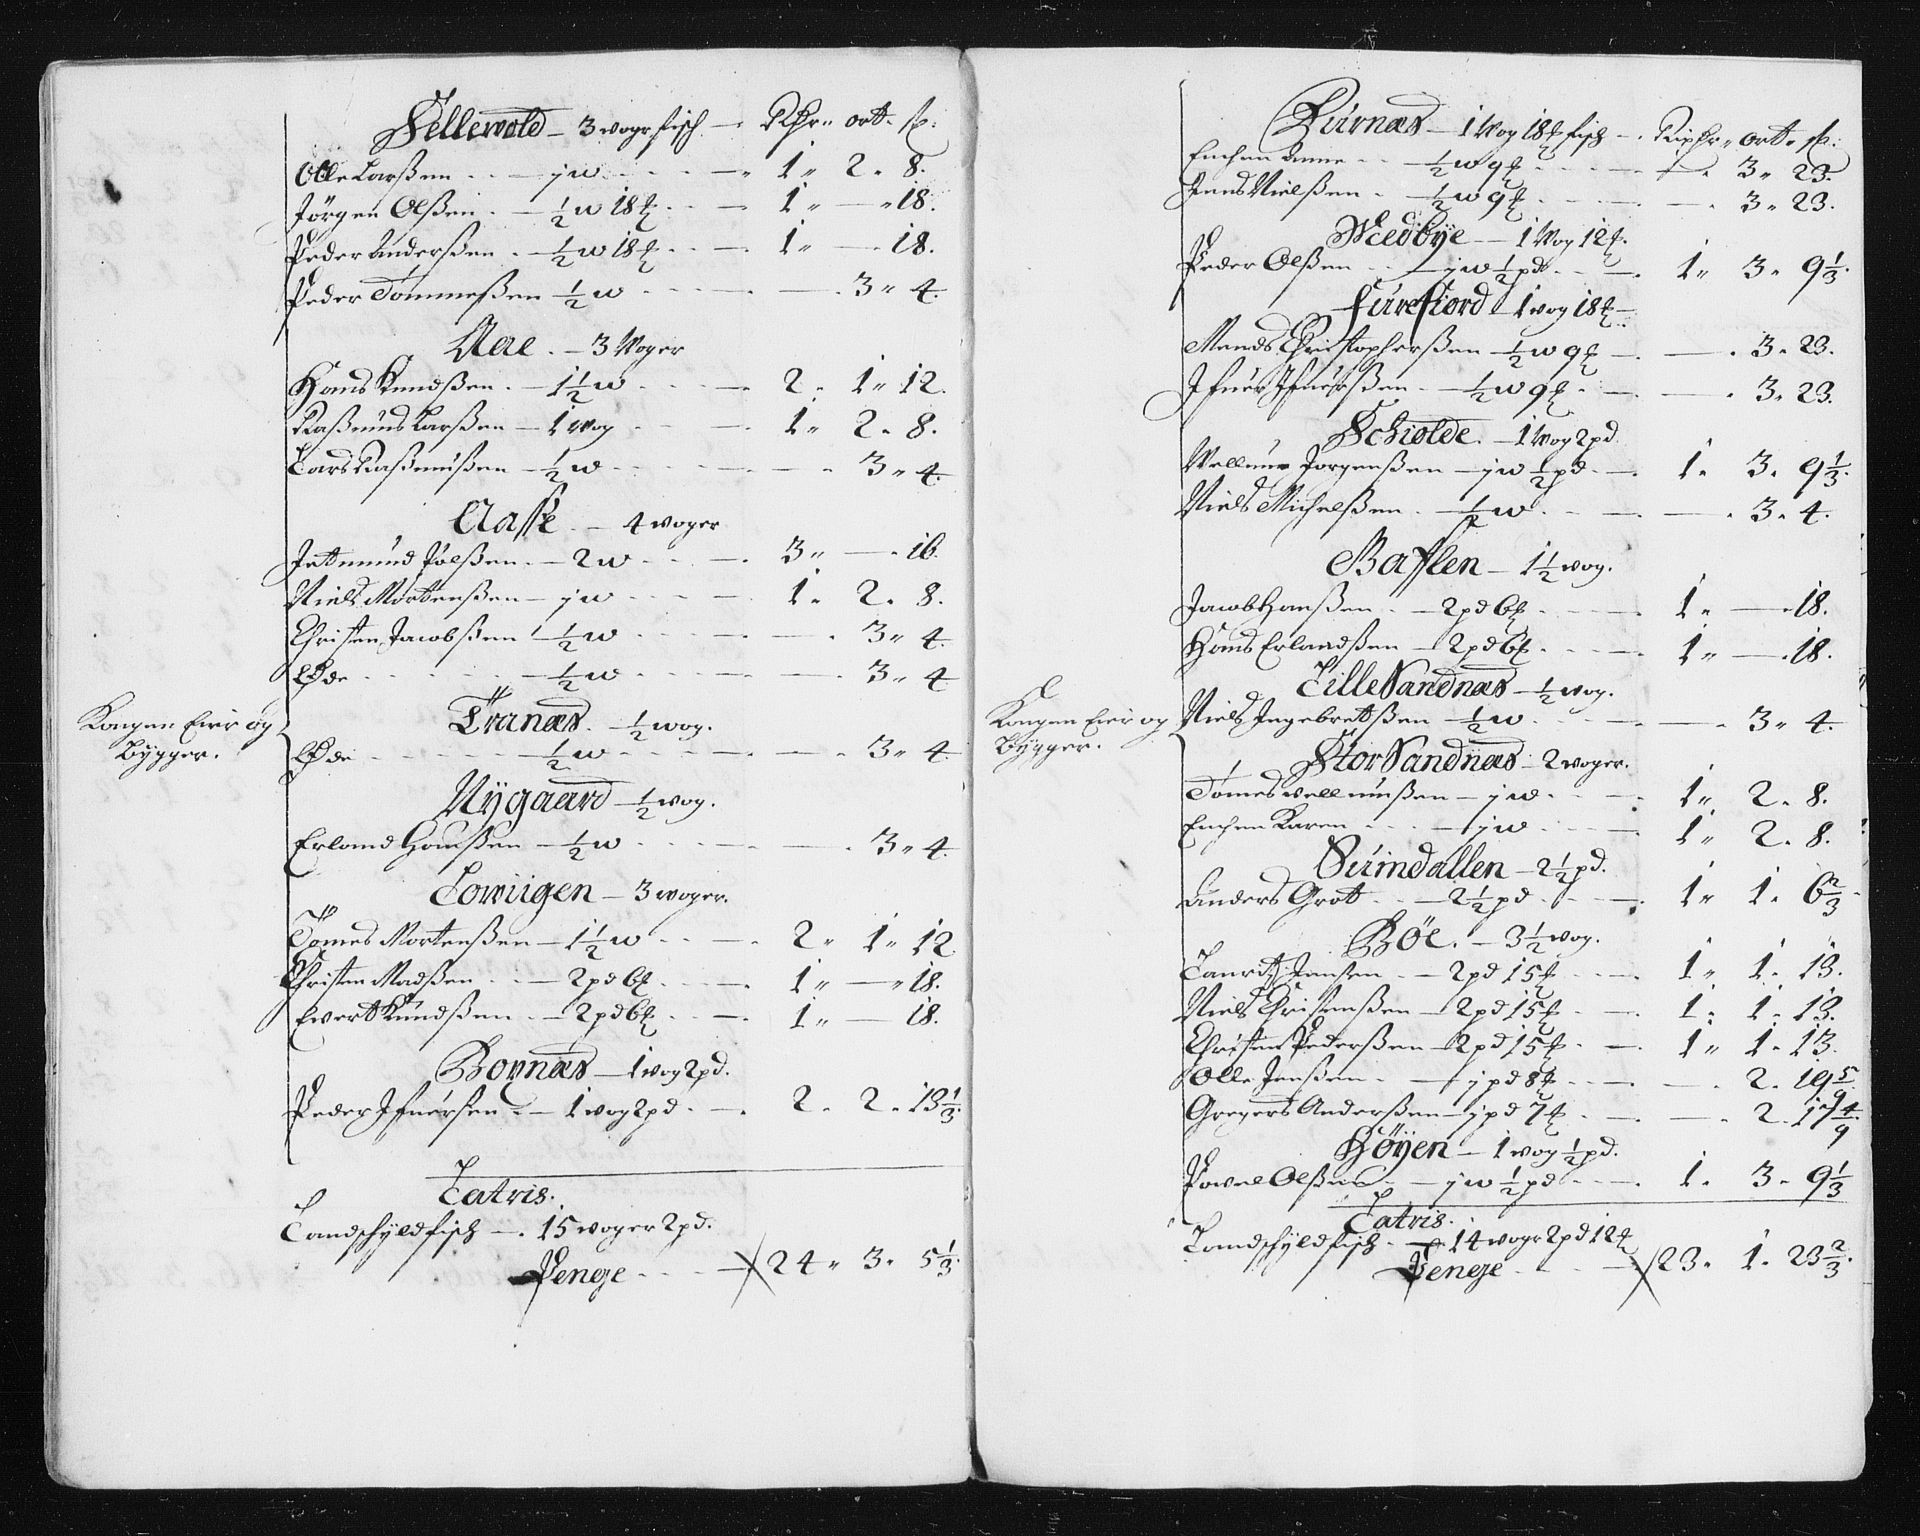 Fellewold – 3 wogr fisch. – Rdr ort. sk:
Olle Larßen – j w – 1 2. 8.
Jörgen Olßen – ½ w 18 ℔ – 1 – 18.
Peder Anderßen – ½ w 18 ℔ – 1 – 18.
Peder Tommeßen ½ w – 3 4.
Aae. – 3 Woger
Hans Knudßen. – 1½ w – 2. 1 12.
Raßmus Larßen – 1 Wog – 1 2. 8.
Lars Raßmußen – ½ w – 3 4.
Aaße. – 4 woger
Jettmund Jolßen – 2 w – 3 – 16.
Niels Mortenßen – j w – 1. 2. 8.
Christen Jacobßen ½ w – 3 4.
Øde – ½ w – 3 4
Kongen Eier og
Bygger.
Tranæs. – ½ wog.
Øde – ½ w – 3 4
Nygaard – ½ wog.
Erland Hanßen – ½ w – 3 4.
Lowiigen – 3 woger.
Tomes Mortenßen – 1½ w – 2 1 12
Christen Madßen – 2 pd 6 ℔ – 1 – 18.
Ewert Knudßen – 2 pd 6 ℔ – 1 – 18.
Bornæs – 1 wog 2 pd.
Peder Ifuersen – 1 wog 2 pd. – 2. 2. 13⅓.
Latris.
Landschyld fisch – 15 woger 2 pd.
Penge – 24 3. 5⅓.
Burnæs – 1 Wog 18 ℔ fisch – Rixdr ort sk:
Enchen Anne – ½ w 9 ℔ – 3 23.
Jens Nielßen – ½ w 9 ℔ – 3 23.
Medbye – 1 Wog 12 ℔.
Peder Olßen – j w ½ pd – 1 3. 9⅓.
Furefiord – 1 wog 18 ℔
Mands Christopherßen – ½ w 9 ℔ – 3. 23.
Ifuer Ifuerßen – ½ w 9 ℔ – 3. 23.
Schiolde. – 1 Wog 2 pd
Wellum Jorgenßen – j w ½ pd – 1. 3. 9⅓.
Niels Michelßen – ½ w – 3. 4.
– 1½ wog.
Jacob Hanßen – 2 pd 6 ℔ – 1 – 18.
Hans Erlandßen – 2 pd 6 ℔ – 1 – 18.
Lille Sandnæs – ½ wog.
Kongen Eier og
Bygger.
Niels Ingebretßen – ½ w – 3 4.
Stor Sandnæs – 2 woger.
Tomes Wellumßen – j w – 1 2. 8.
Enchen Karen – j w – 1 2. 8.
Suindallen – 2½ pd.
Anders Grot – 2½ pd – 1 1. 6⅔
Böe. – 3½ wog.
Lauritz Jensen – 2 pd 15 ℔ – 1 1. 13.
Niels Christenßen – 2 pd 15 ℔ – 1. 1. 13.
Christen Pederßen – 2 pd 15 ℔ – 1 1. 13.
Olle Jenßen – j pd 8 ℔ – 2. 19 5/9
Gregers Anderßen – j pd 7 ℔ – 2. 17 4/9
Höyen – 1 wog ½ pd.
Powel Olßen – j w ½ pd – 1. 3. 9⅓
Latris.
Landschyld fisch – 14 wogr 2 pd 12 ℔
Penge – 23. 1. 23⅔.